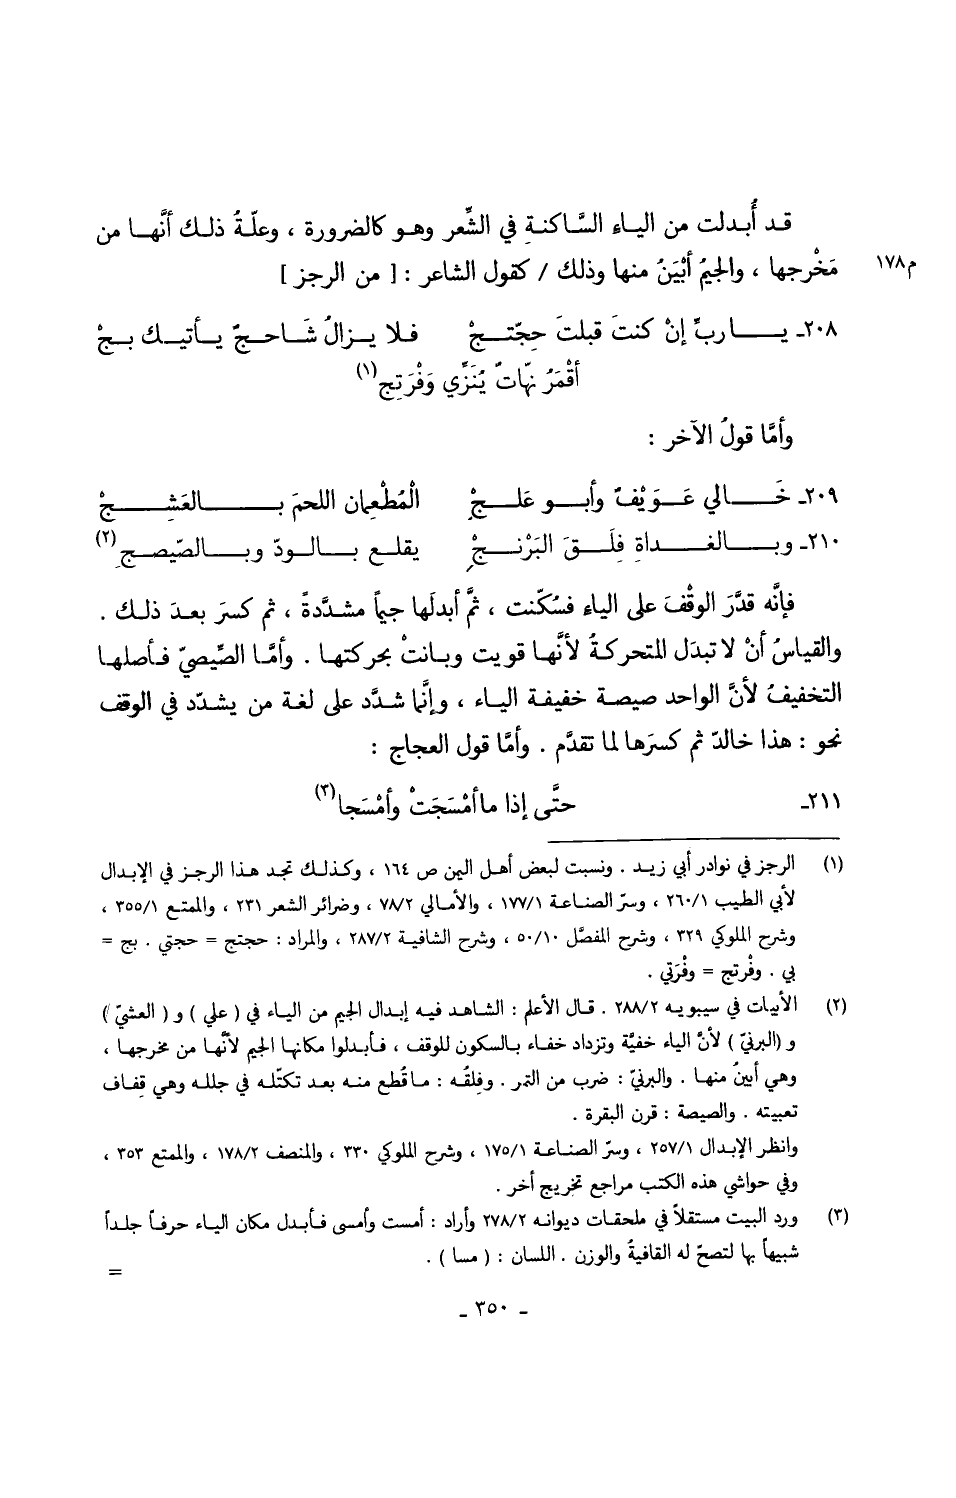 قد أُبدلت من الياء السَّاكنةِ في الشِّعر وهو كالضرورة ، وعلّةُ ذلك أنَّها من
مَخْرجها ، والجيمُ أبْيَنُ منها وذلك / كقول الشاعر : [ من الرجز ]
م١٧٨
٢٠٨ـ يا ربِّ إنْ كنتَ قبلتَ حِجّتجْ فلا يزالُ شَاحجٌ يأتيك بجْ
أقْمَرُ نهّاتٌ يُنَزِّي وَفْرَتِج(١)
وأمَّا قولُ الآخر :
٢٠٩ـ خَالي عَوَيْفٌ وأبو عَلجِّ الْمُطْعِمان اللحمَ بالعَشِجِّ
٢١٠ـ وبالغداةِ فِلَقَ البَرْنجِّ يقلع بالودّ وبالصّيصجِّ(٢)
فإنَّه قدَّرَ الوقْفَ على الياء فسُكّنت ، ثمَّ أبدلَها جيماً مشدَّدةً ، ثم كسرَ بعدَ ذلك .
والقياسُ أنْ لا تبدَل المتحركةُ لأنَّها قويت وبانتْ بحركتها . وأمَّا الصِّيصيّ فأصلها
التخفيفُ لأنَّ الواحد صيصة خفيفة الياء ، وإنَّما شدَّد على لغة من يشدّد في الوقف
نحو : هذا خالدّ ثم كسرَها لما تقدَّم . وأمَّا قول العجاج :
٢١١ـ حتَّى إذا ما أمْسَجَتْ وأمْسَجا(٣)
(١) الرجز في نوادر أبي زيد . ونسبت لبعض أهل اليمن ص ١٦٤ ، وكذلك تجد هذا الرجز في الإبدال
لأبي الطيب ٢٦٠/١ ، وسرّ الصناعة ١٧٧/١ ، والأمالي ٧٨/٢ ، وضرائر الشعر ٢٣١ ، والممتع ٣٥٥/١ ،
وشرح الملوكي ٣٢٩ ، وشرح المفصَّل ٥٠/١٠ ، وشرح الشافية ٢٨٧/٢ ، والمراد : حجتج = حجتي . بج =
بي . وفْرتج = وفْرَتي .
(٢) الأبيات في سيبويه ٢٨٨/٢ . قال الأعلم : الشاهد فيه إبدال الجيم من الياء في ( علي ) و ( العشيّ )
و (البرنيّ ) لأنَّ الياء خفيّة وتزداد خفاء بالسكون للوقف ، فأبدلوا مكانها الجيم لأنَّها من مخرجها ،
وهي أبينُ منها . والبرنيّ : ضرب من التمر . وفلقُه : ما قُطع منه بعد تكتّله في جلله وهي قِفاف
تعبيته . والصيصة : قرن البقرة .
وانظر الإبدال ٢٥٧/١ ، وسرّ الصناعة ١٧٥/١ ، وشرح الملوكي ٣٣٠ ، والمنصف ١٧٨/٢ ، والممتع ٣٥٣ ،
وفي حواشي هذه الكتب مراجع تخريج أخر .
(٣) ورد البيت مستقلاً في ملحقات ديوانه ٢٧٨/٢ وأراد : أمست وأمسى فأبدل مكان الياء حرفاً جلداً
شبيهاً بها لتصحّ له القافيةُ والوزن . اللسان : ( مسا ) .
=
ـ ٣٥٠ ـ